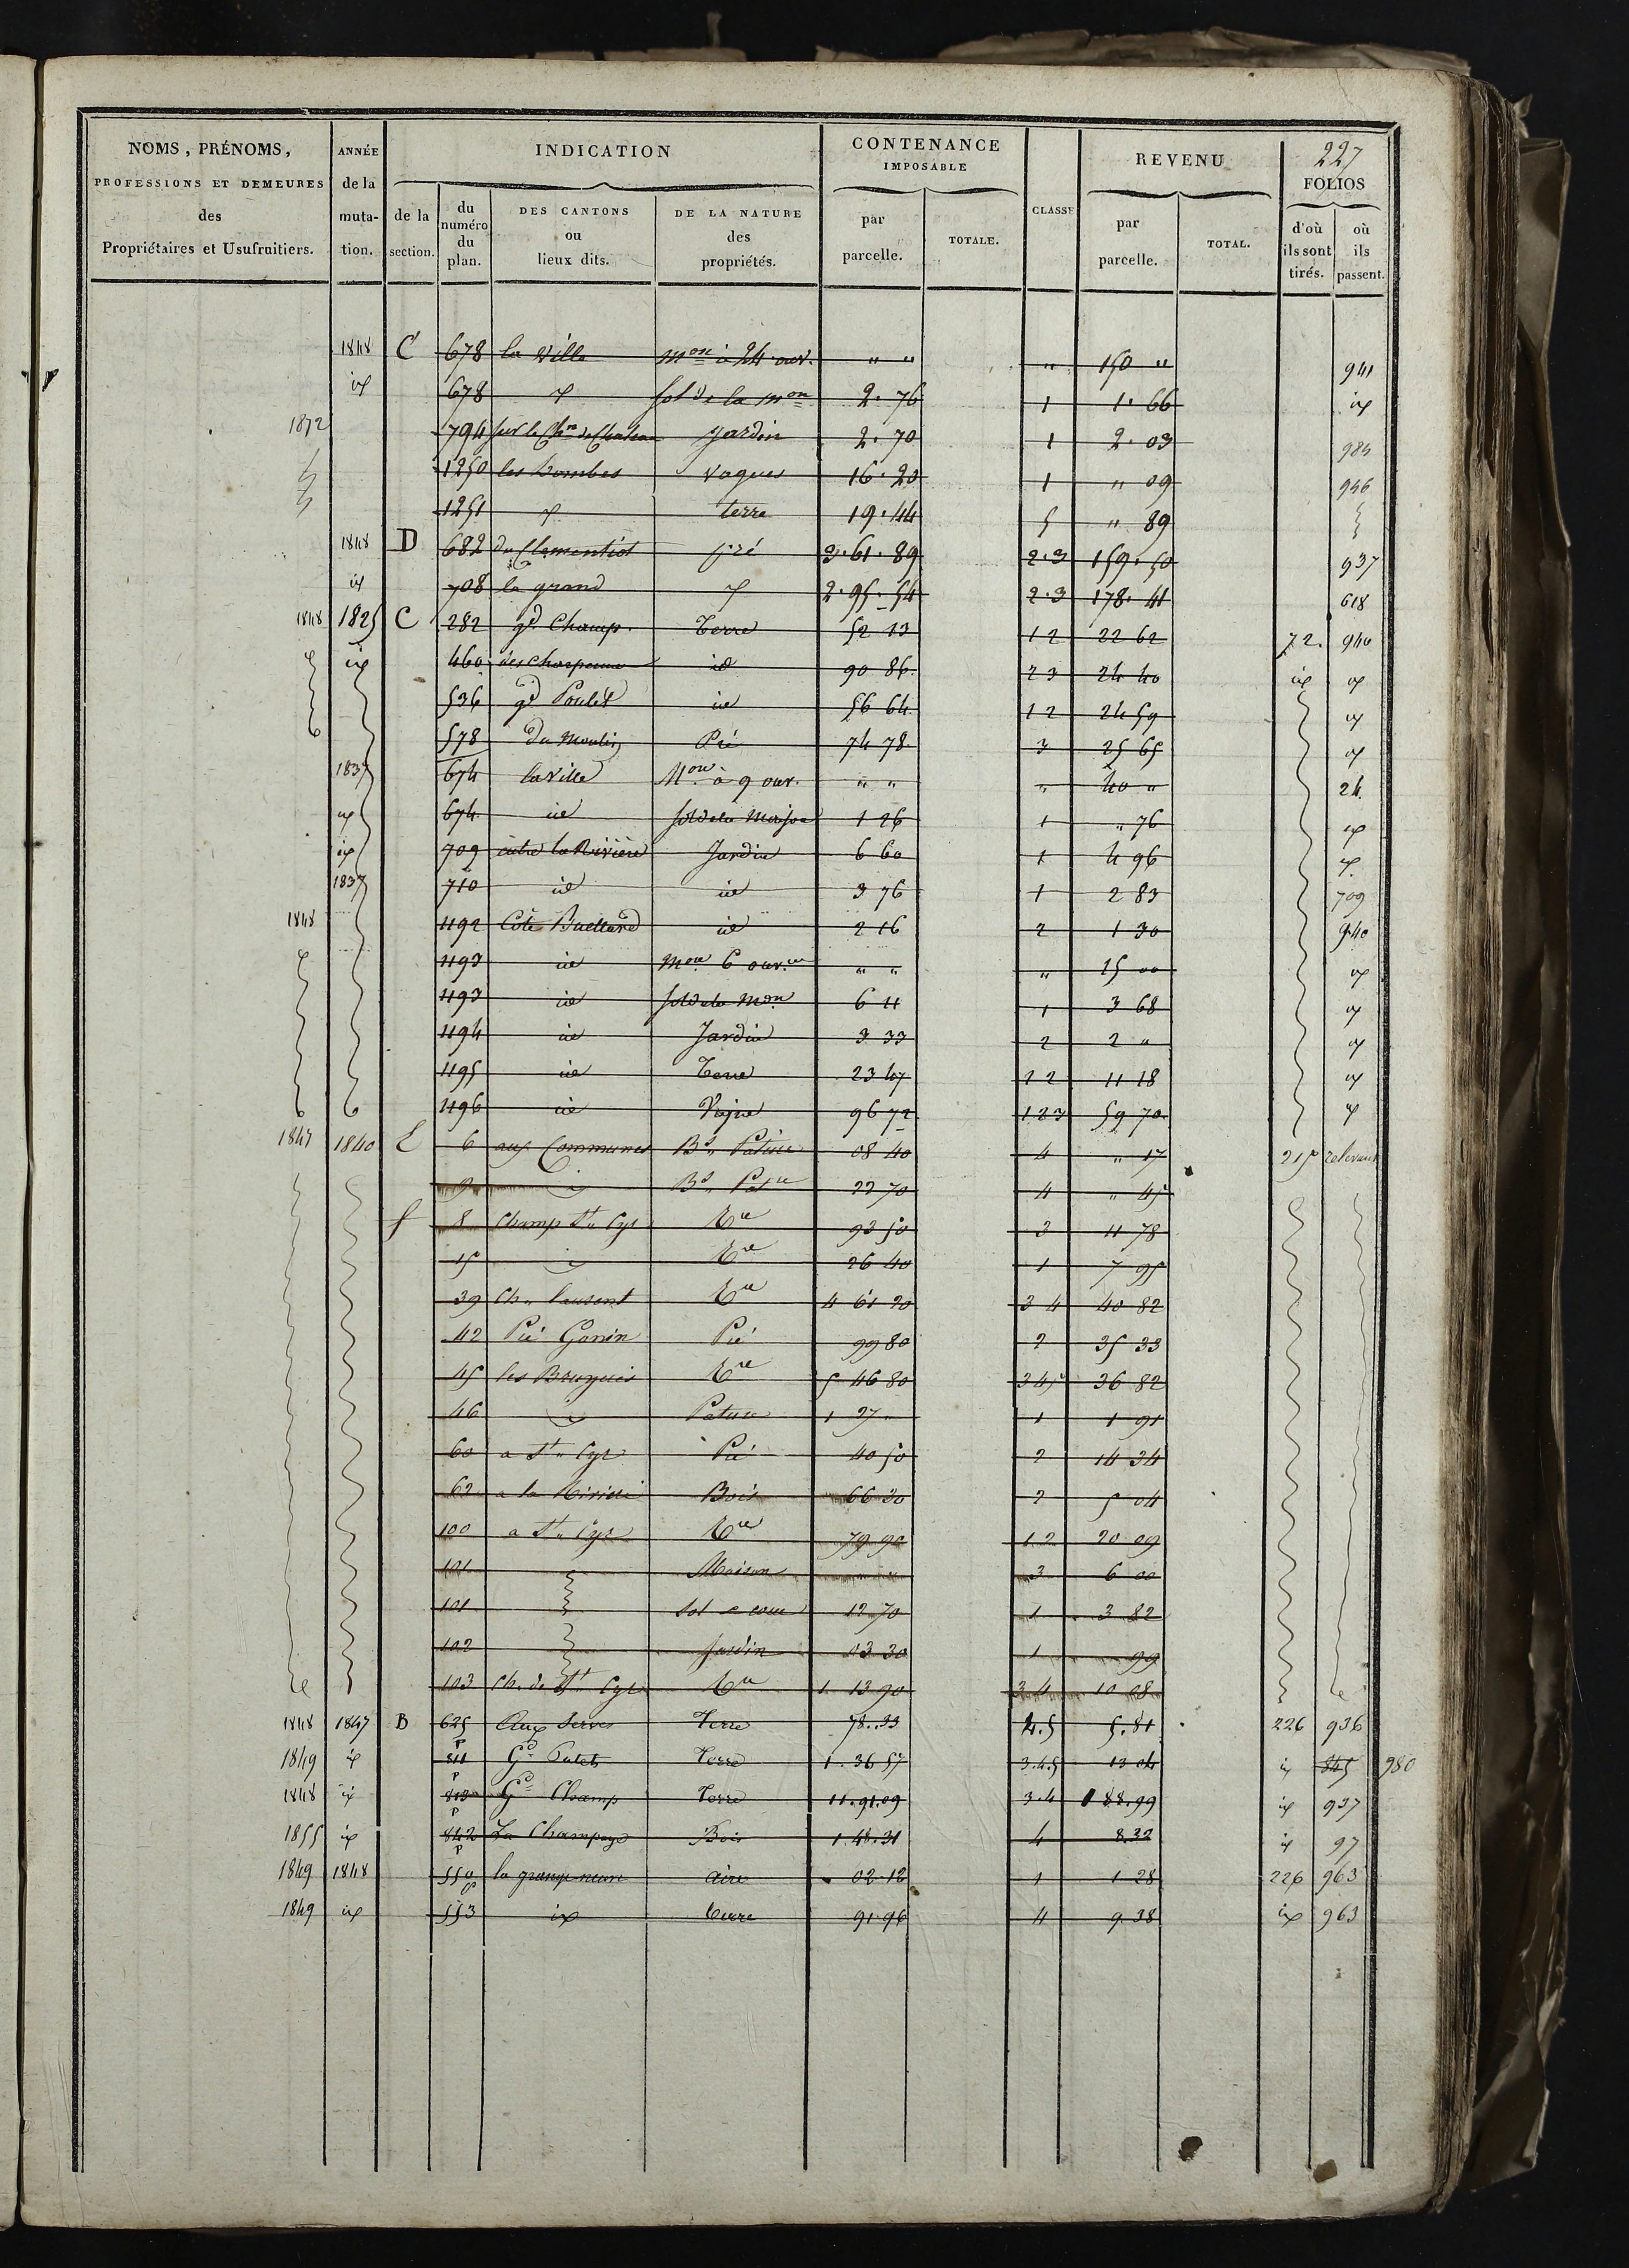 227
NOMS, PRÉNOMS, PROFESSIONS ET DEMEURES des Propriétaires et Usufruitiers.
ANNÉE de la mutation.
INDICATION
de la section.
du numéro du plan.
DES CANTONS ou lieux dits.
DE LA NATURE des propriétés.
CONTENANCE IMPOSABLE
par parcelle.
TOTALE.
CLASSE
REVENU
par parcelle.
TOTAL.
FOLIOS
d'où ils sont tirés.
où ils passent.
1848 C 678 la ville mon à 24 ouv. " " " 150 " 941
id 678 id sol de la mon 2.76 1 1.66 id
1872 794 sur le Chin de Jardin 2.70 1 2.03 984
1250 les bombes vagues 16.20 1 " 09 946
1251 id terre 19.44 5 " 89
1848 D 682 pré 3.61.89 2.3 159.50 937
id 708 le grand id 2.95.54 2.3 178.41 618
1848 1825 C 282 gd Champ. Terre 52 13 12 22 62 72. 940
id 460 id 90 86 23 24 40 id id
536 gd Poulet id 56 64 12 24 59 id
578 du Moulin Pré 74 78 3 25 65 id
1837 674 la ville Mon à 9 ouv. " " " 40 " 24
id 674 id sol de la Maison 1 26 1 " 76 id
id 709 outre la Rivière Jardin 6 60 1 4 96 id
1837 710 id id 3 76 1 2 83 709
1848 1192 Côte id 2 16 2 1 30 940
1193 id Mon 6 ouv. " " " 15 00 id
1193 id sol de la Mon 6 11 1 3 68 id
1194 id Jardin 3 33 2 2 " id
1195 id Terre 23 47 12 11 18 id
1196 id Vigne 96 72 123 59 70 id
1847 1840 E 6 aux Communes Bs Pature 08 40 4 " 17 215
9 id Bs Pature 22 70 4 " 45
f 8 Champ St Cyr Tre 93 50 3 11 78
15 id Tre 26 40 1 7 95
39 Ch. laurent Tre 4 61 20 3 4 40 82
42 Pré Gonin Pré 99 80 2 35 33
45 les Bruyeres Tre 5 46 80 345 36 82
46 id Pature 1 27 " 1 1 91
60 a St Cyr Pré 40 50 2 14 34
62 a la Rivière Bois 66 30 2 5 04
100 a St Cyr Tre 79 90 12 20 09
101 Maison " " 3 6 00
101 Sol e cour 12 70 1 3 82
102 Jardin 03 30 1 99
103 Ch. de St Cyr Tre 1 13 90 34 10 08
1848 1847 B 625 p Aux Serves Terre 78.33 4.5 5.81 226 936
1849 id 811 p Gd Terre 1.36 57 3.4.5 13 04 id 845 980
1848 id 813 p Gd Champ Terre 11.91.09 3.4 188.99 id 937
1855 id 842 p La Champagne Bois 1.48.31 4 8.32 id 97
1849 1848 559 la grange neuve aire 02.12 1 1 28 226 963
1849 id 553 id terre 91.96 4 9.38 id 963